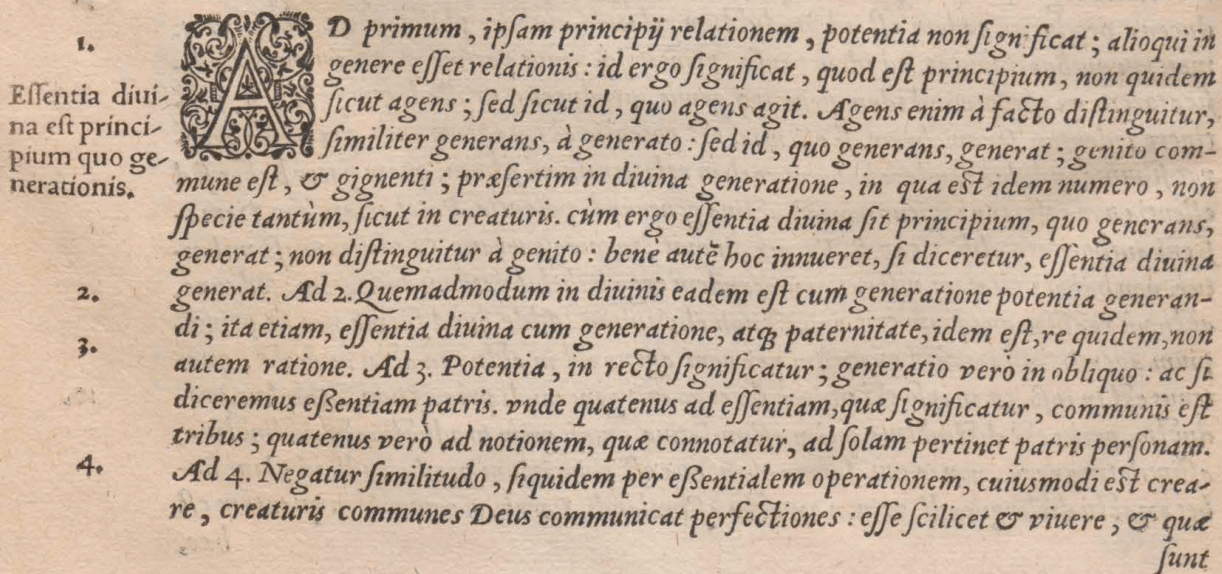 1.
AD primum, ipſam principij relationem, potentia non ſign ficat; alioqui in
genere eſſet relationis: id ergo ſignificat, quod eſt principium, non quidem
Eſſentia diui-
na eſt princi-
pium quo ge-
nerationis.
ſicut agens; ſed ſicut id, quo agens agit. Agens enim à facto diſtinguitur,
ſimiliter generans, à generato: ſed id, quo generans, generat; genito com-
mune eſt, & gignenti; præſertim in diuina generatione, in qua eſt idem numero, non
ſpecie tantùm, ſicut in creaturis. cùm ergo eſſentia diuina ſit principium, quo generans,
generat; non diſtinguitur à genito: benè autē hoc innueret, ſi diceretur, eſſentia diuina
2.
generat. Ad 2. Quemadmodum in diuinis eadem eſt cum generatione potentia generan-
di; ita etiam, eſſentia diuina cum generatione, atq; paternitate, idem eſt, re quidem, non
3.
autem ratione. Ad 3. Potentia, in recto ſignificatur; generatio verò in obliquo: ac ſi
diceremus eßentiam patris. vnde quatenus ad eſſentiam, quæ ſignificatur, communis eſt
tribus; quatenus verò ad notionem, quæ connotatur, ad ſolam pertinet patris perſonam.
4.
Ad 4. Negatur ſimilitudo, ſiquidem per eßentialem operationem, cuiuſmodi eſt crea-
re, creaturis communes Deus communicat perfectiones: eſſe ſcilicet & viuere, & quæ
ſunt